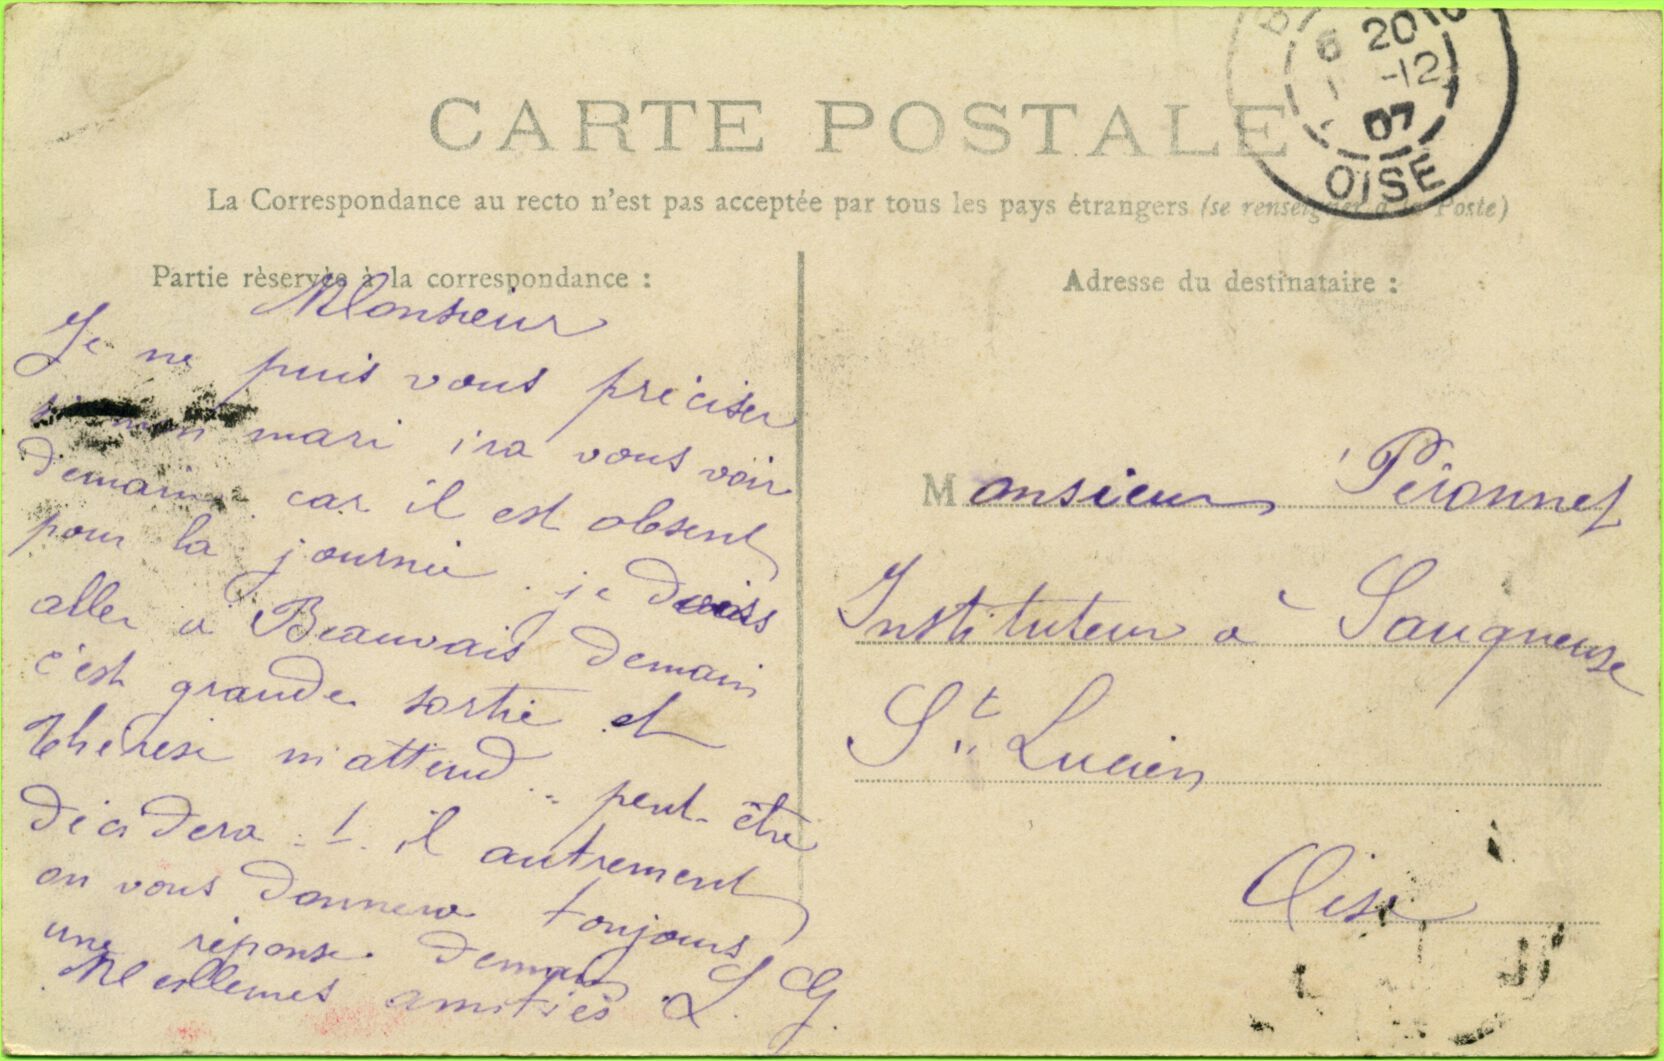 CARTE POSTALE
6 20
-12
07
OISE
La Correspondance au recto n'est pas acceptée par tous les pays étrangers (se renseigner à la Poste)
Partie réservée à la correspondance :
Monsieur
Je ne puis vous préciser
si mon mari ira vous voir
demain car il est absent
pour la journée. je dois
aller à Beauvais demain
c'est grande sortie et
Thérèse m'attend.. peut-être
décidera-t-il autrement
on vous donnera toujours
une réponse demain
Meilleures amitiés L. G.
Adresse du destinataire :
Monsieur Péronnet
Instituteur à Sauqueuse
St Lucien
Oise